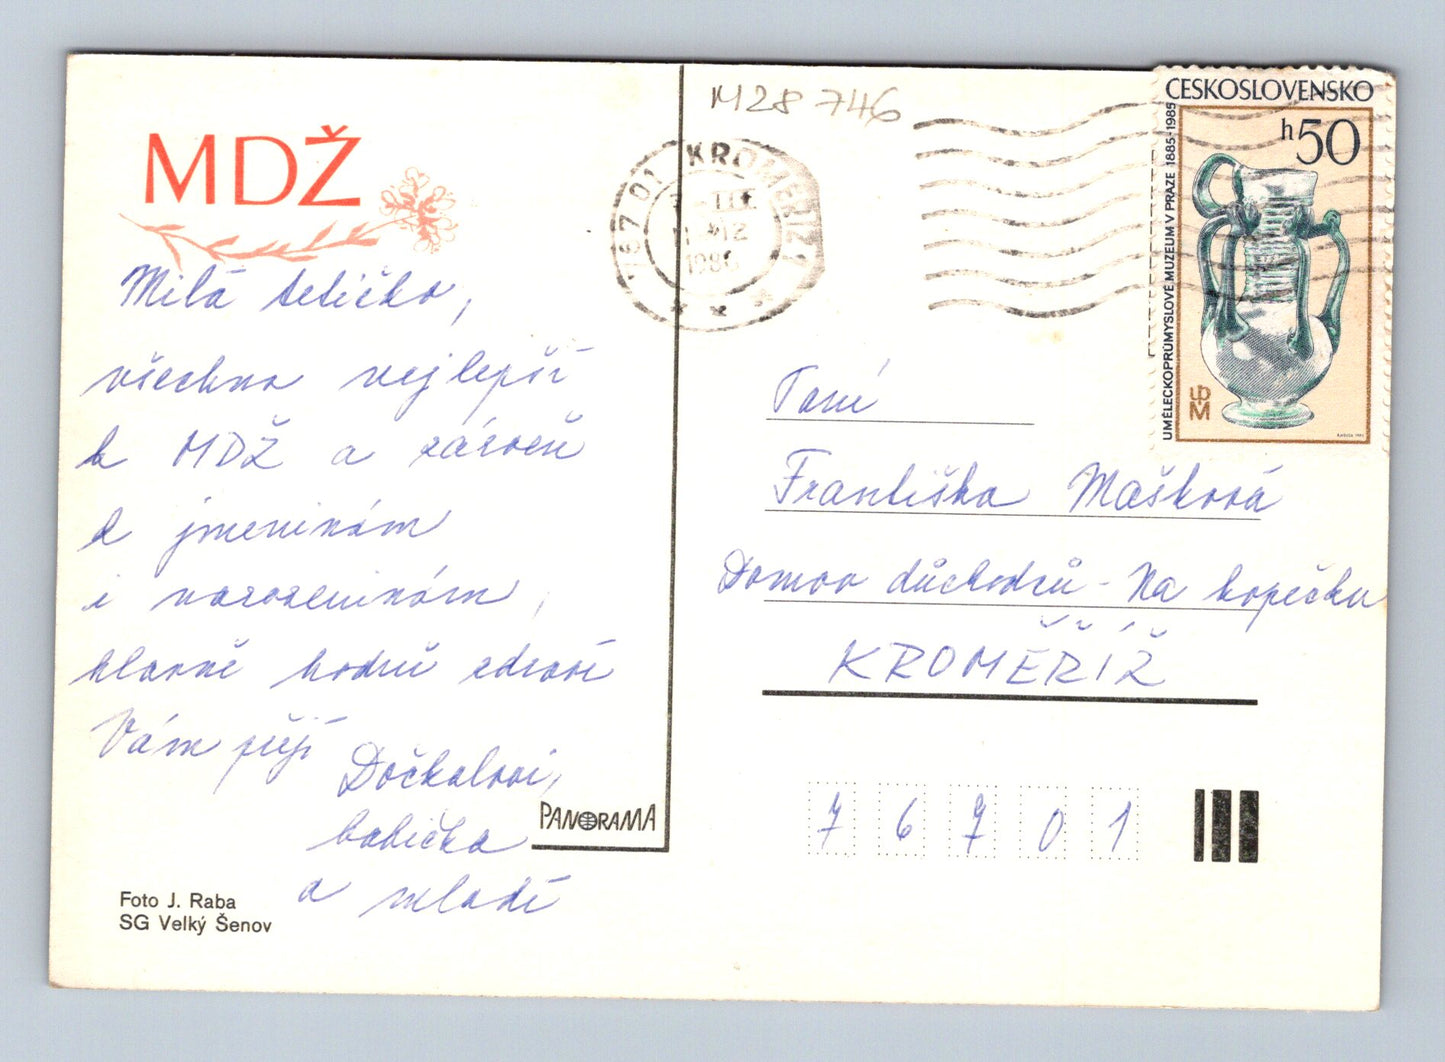 MDŽ
Milá tetičko,
všechno nejlepší
k MDŽ a zároveň
k jmeninám
i narozeninám,
hlavně hodně zdraví
Vám přejí
Dočkalovi,
babička
a mladí
PANORAMA
Foto J. Raba
SG Velký Šenov
M28 746
767 01 KROMĚŘÍŽ 1
III
12
1986
ČESKOSLOVENSKO
h50
UMĚLECKOPRŮMYSLOVÉ MUZEUM V PRAZE 1885-1985
UPM
Paní
Františka Mašková
Domov důchodců - Na kopečku
KROMĚŘÍŽ
76701